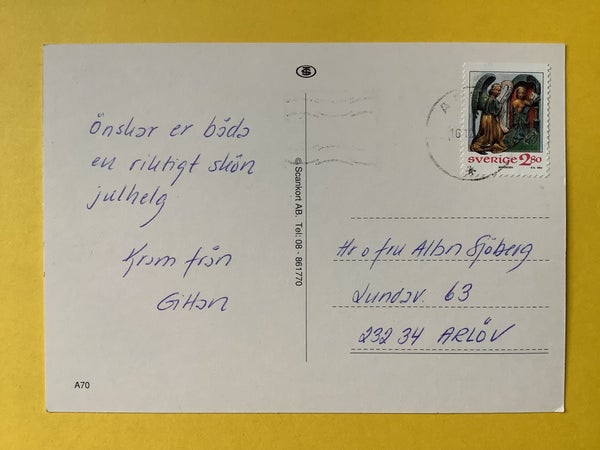 Önskar er båda
en riktigt skön
julhelg
Kram från
Gittan
A70
© Scankort AB. Tel: 08 - 861770
SVERIGE 2.80
Hr o fru Allan Sjöberg
Lundav. 63
232 34 ARLÖV